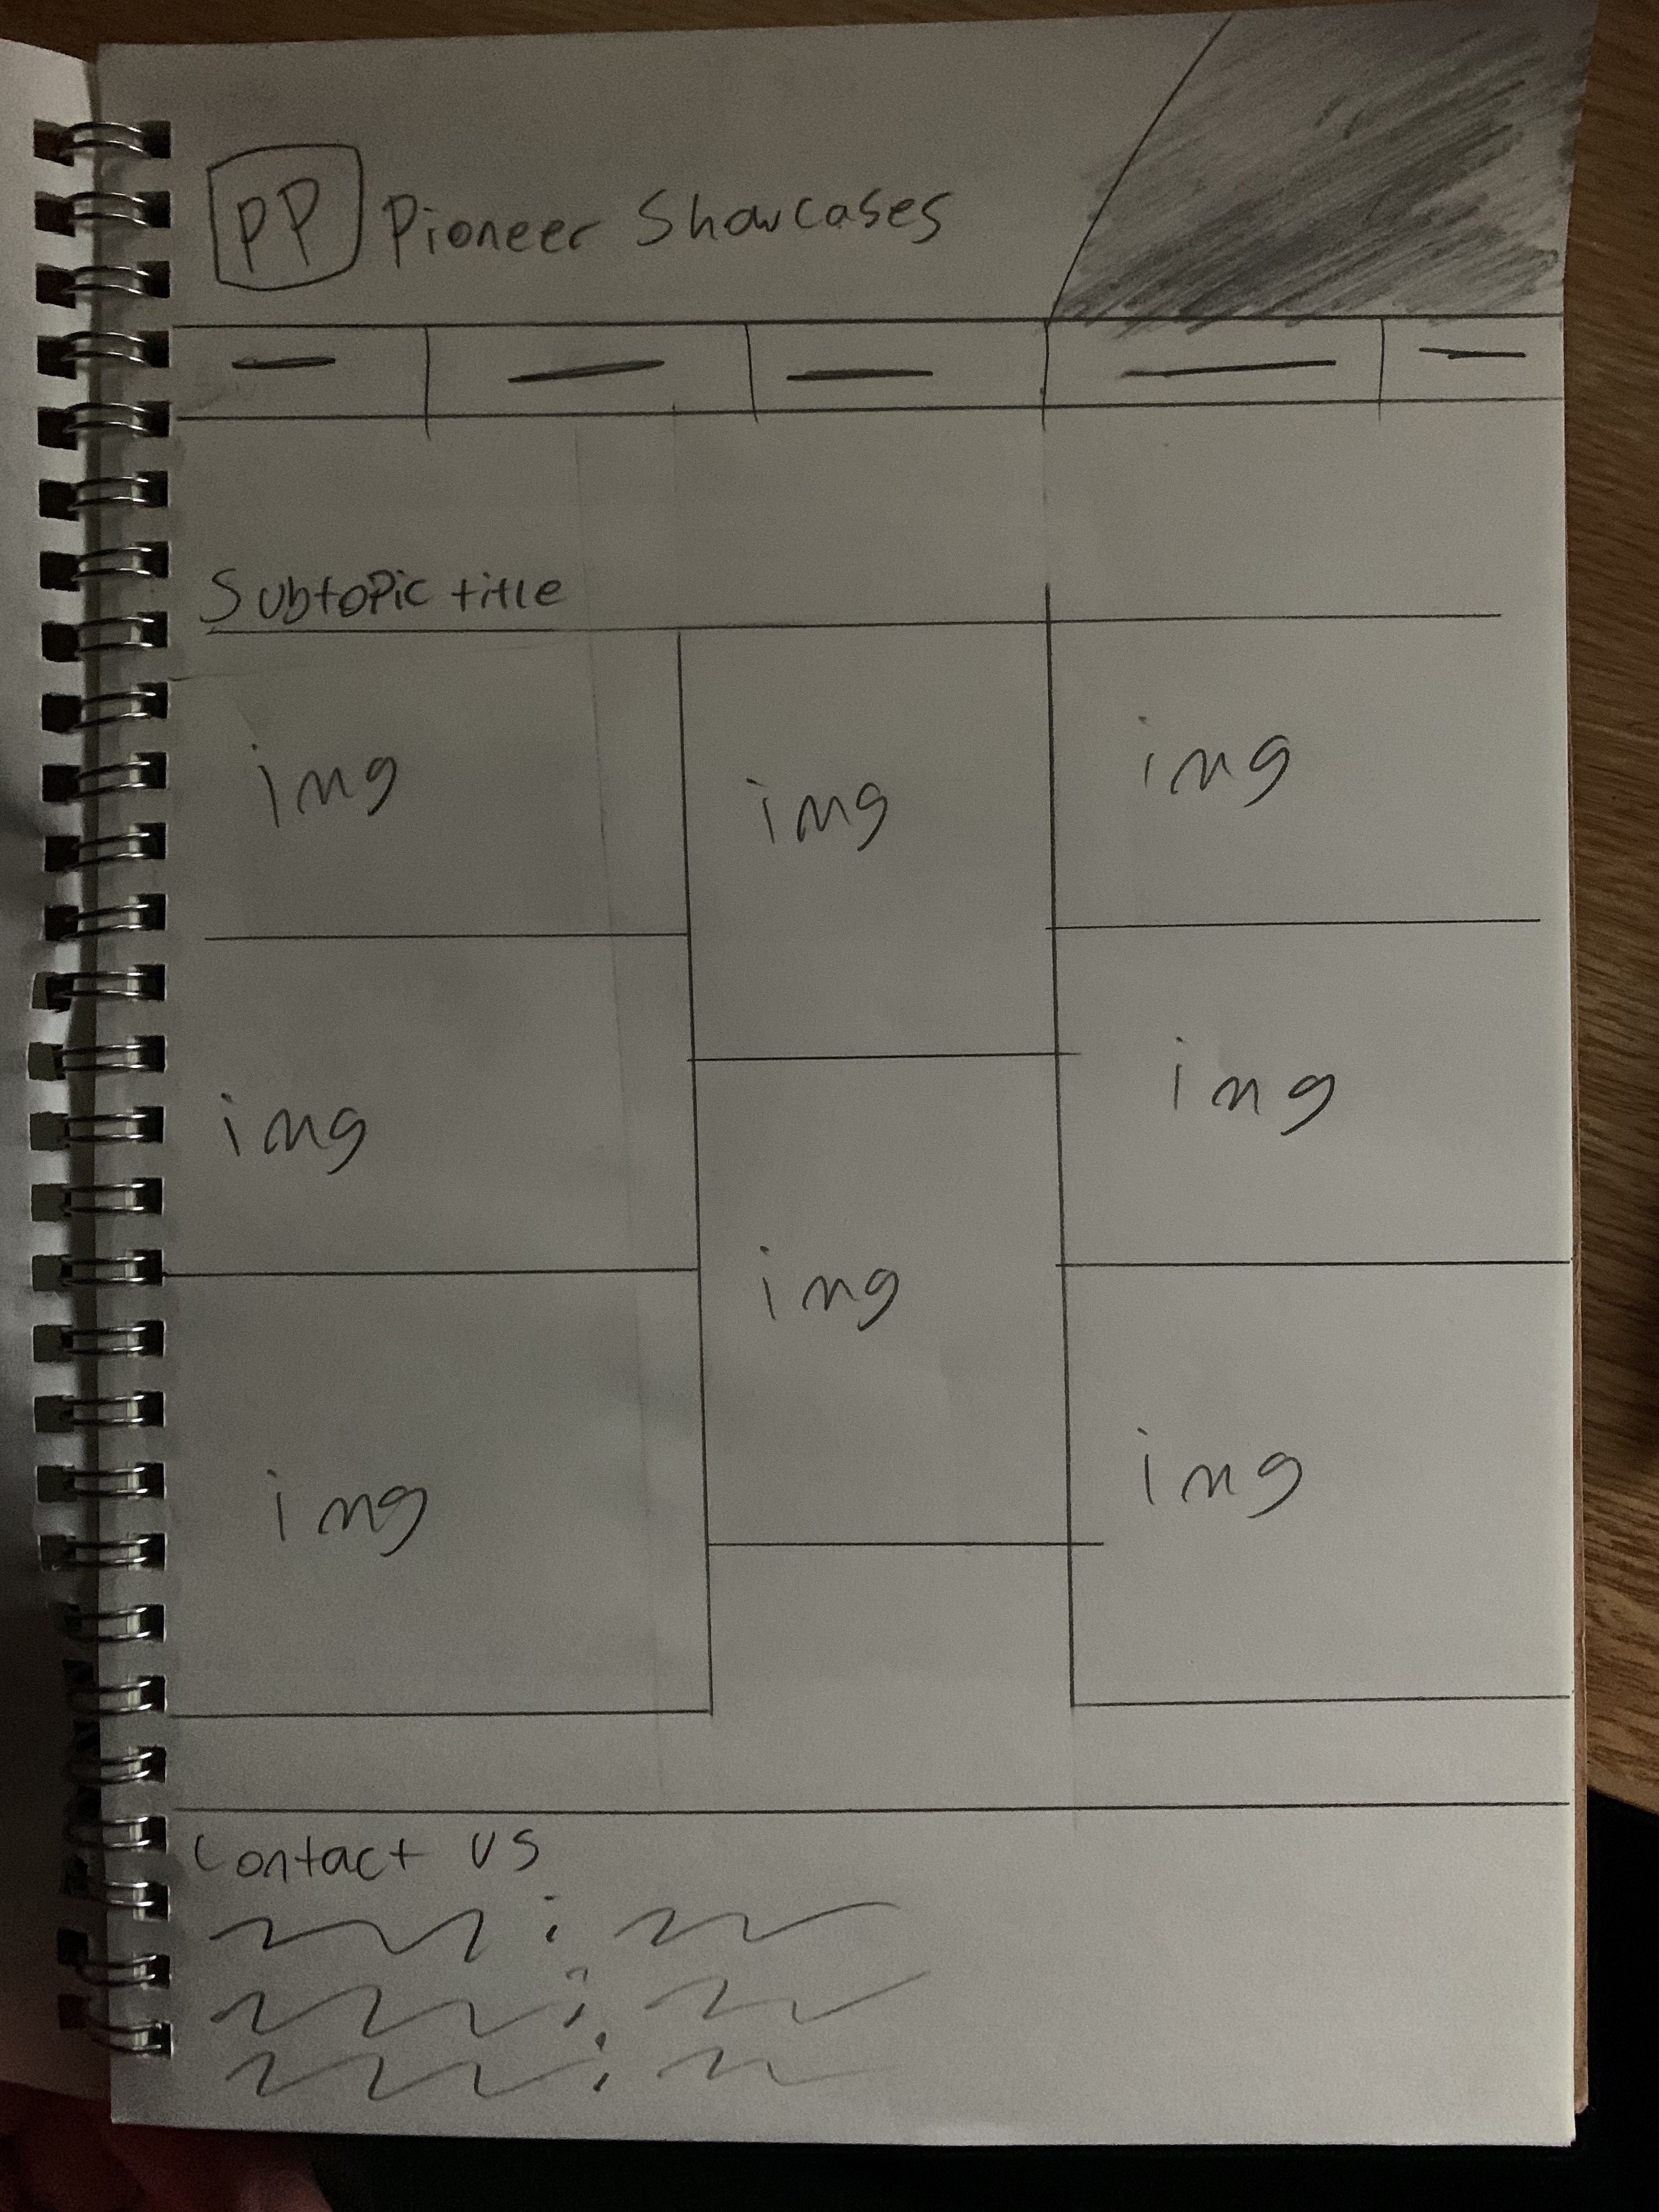 PP Pioneer Showcases
Subtopic title
img img img
img img
img
img img
Contact us